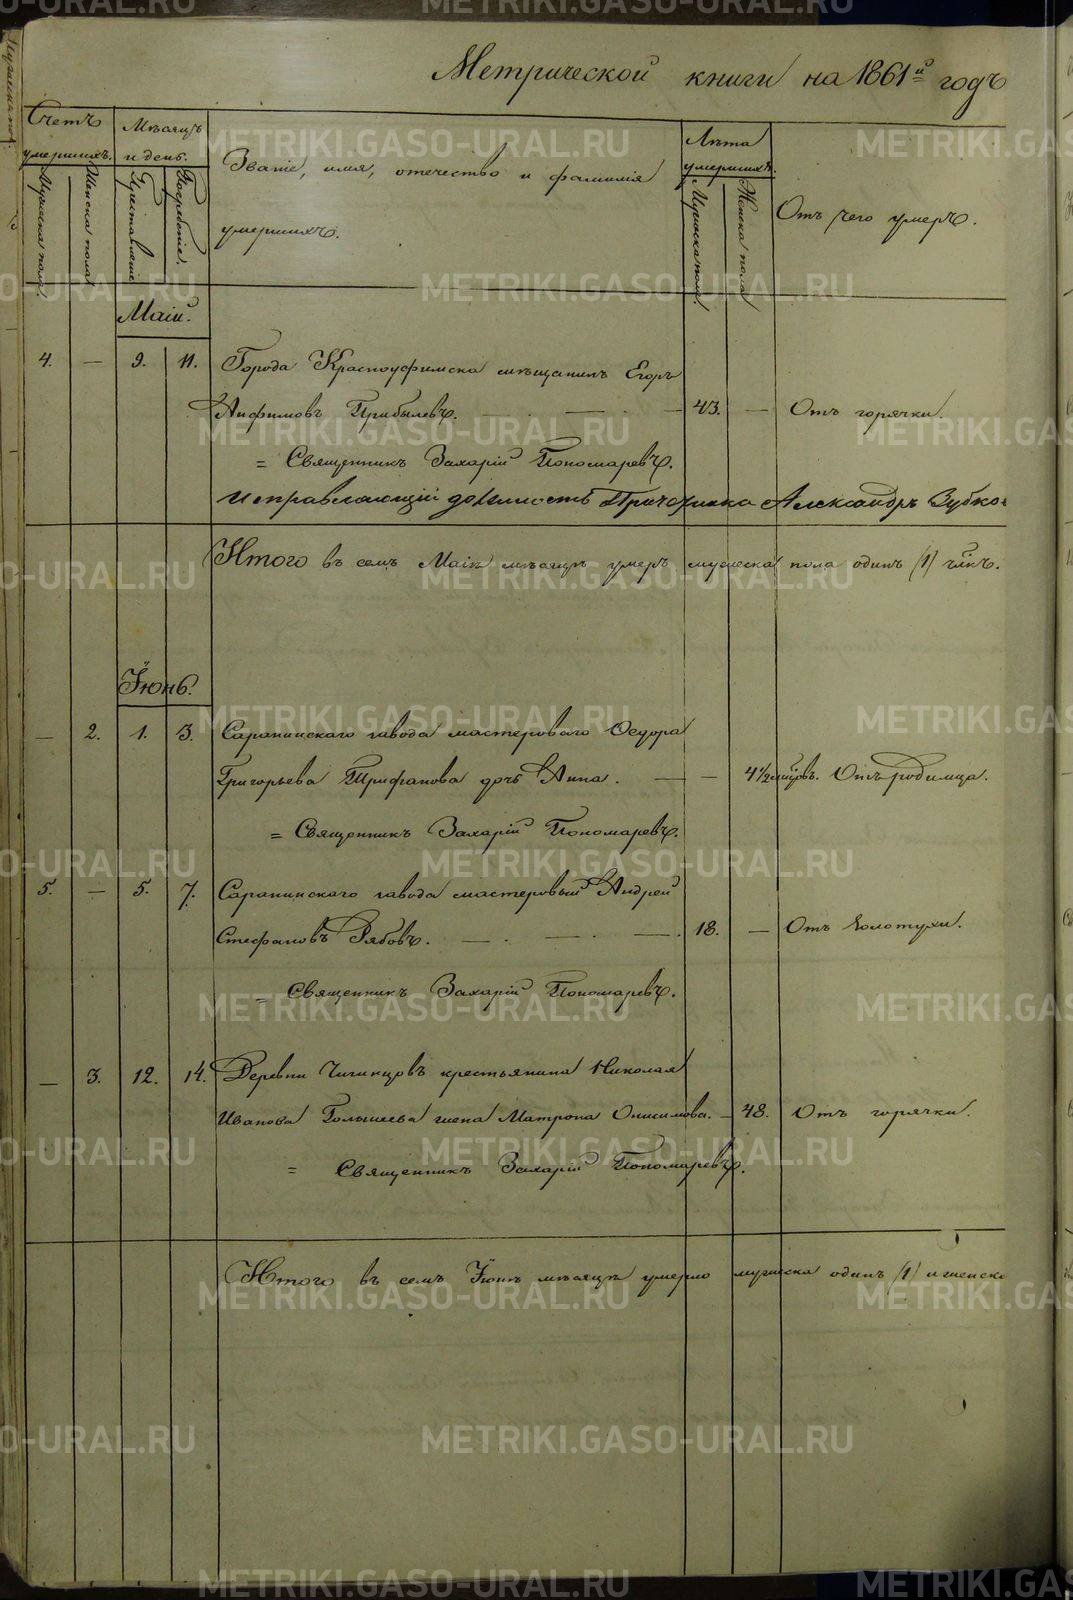 Метрической книги на 1861й годъ
Счетъ умершихъ.
Мужеска пола.
Женска пола.
Мѣсяцъ и день.
Преставленіе
Погребеніе.
Званіе, имя, отечество и фамилія
умершихъ.
Лѣта умершихъ.
Мужеска пола.
Женска пола
Отъ чего умеръ.
Маій.
4. — 9. 11. Города Красноуфимска мѣщанинъ Егоръ
Анфимовъ Прибылевъ. — . — . — 43. — Отъ горячки.
= Священникъ Захарій Пономаревъ.
Исправляющій должность Причетника Александръ Зубко
Итого въ семъ Маіѣ мѣсяцѣ умеръ мужеска пола одинъ (1) члкъ.
Іюнь.
— 2. 1. 3. Саранинскаго завода мастероваго Ѳедора
Григорьева Трифанова дочь Анна. — — 4 1/2 мцовъ. Отъ родимца.
= Священникъ Захарій Пономаревъ.
5. — 5. 7. Саранинскаго завода мастеровый Андрей
Стефановъ Рябовъ. — . — . — . 18. — Отъ золотухи.
= Священникъ Захарій Пономаревъ.
— 3. 12. 14. Деревни Чигинцовъ крестьянина Николая
Иванова Голышева жена Матрона Онисимова. — 48. Отъ горячки.
= Священникъ Захарій Пономаревъ.
Итого въ семъ Іюнѣ мѣсяцѣ умерло мужеска одинъ (1) и женска
METRIKI.GASO-URAL.RU